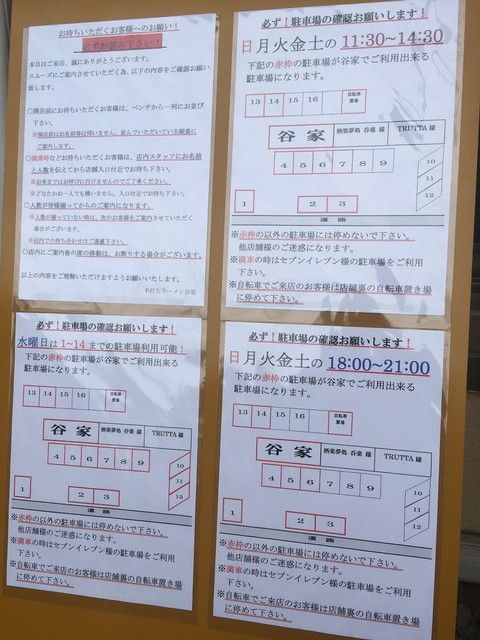 お待ちいただくお客様へのお願い！
必ずお読み下さい！
本日はご来店、誠にありがとうございます。
スムーズにご案内させていただく為、以下の内容をご確認お願い
致します。
○開店前にお待ちいただくお客様は、ベンチから一列にお並び
下さい。
※開店前はお名前等は伺いません。並んでいただいている順番に
ご案内します。
○満席時などお待ちいただくお客様は、店内スタッフにお名前
と人数を伝えてから店舗入口付近でお待ち下さい。
※お車まではお呼びに行けませんのでご了承ください。
※どなたかお一人でも構いません、入口付近でお待ち下さい。
○人数が皆様揃ってからのご案内になります。
※人数が揃っていない時は、次のお客様をご案内させていただく
場合がございます。
※店内での待ち合わせはご遠慮下さい。
○店内にご案内後の席の移動は、お断りする場合がございます。
以上の内容をご理解いただけますようお願いいたします。
手打ちラーメン谷家
必ず！駐車場の確認お願いします！
日月火金土の 11:30~14:30
下記の赤枠の駐車場が谷家でご利用出来る
駐車場になります。
13 14 15 16 自転車置場
谷家 酒楽夢処 呑楽 様 TRUTTA 様
4 5 6 7 8 9
10
11
12
1 2 3
道路
※赤枠の以外の駐車場には停めないで下さい。
他店舗様のご迷惑になります。
※満車の時はセブンイレブン様の駐車場をご利用
下さい。
※自転車でご来店のお客様は店舗裏の自転車置き場
に停めて下さい。
必ず！駐車場の確認お願いします！
水曜日は 1~14 までの駐車場利用可能！
下記の赤枠の駐車場が谷家でご利用出来る
駐車場になります。
13 14 15 16 自転車置場
谷家 酒楽夢処 呑楽 様 TRUTTA 様
4 5 6 7 8 9
10
11
12
1 2 3
道路
※赤枠の以外の駐車場には停めないで下さい。
他店舗様のご迷惑になります。
※満車の時はセブンイレブン様の駐車場をご利用
下さい。
※自転車でご来店のお客様は店舗裏の自転車置き場
に停めて下さい。
必ず！駐車場の確認お願いします！
日月火金土の 18:00~21:00
下記の赤枠の駐車場が谷家でご利用出来る
駐車場になります。
13 14 15 16 自転車置場
谷家 酒楽夢処 呑楽 様 TRUTTA 様
4 5 6 7 8 9
10
11
12
1 2 3
道路
※赤枠の以外の駐車場には停めないで下さい。
他店舗様のご迷惑になります。
※満車の時はセブンイレブン様の駐車場をご利用
下さい。
※自転車でご来店のお客様は店舗裏の自転車置き場
に停めて下さい。